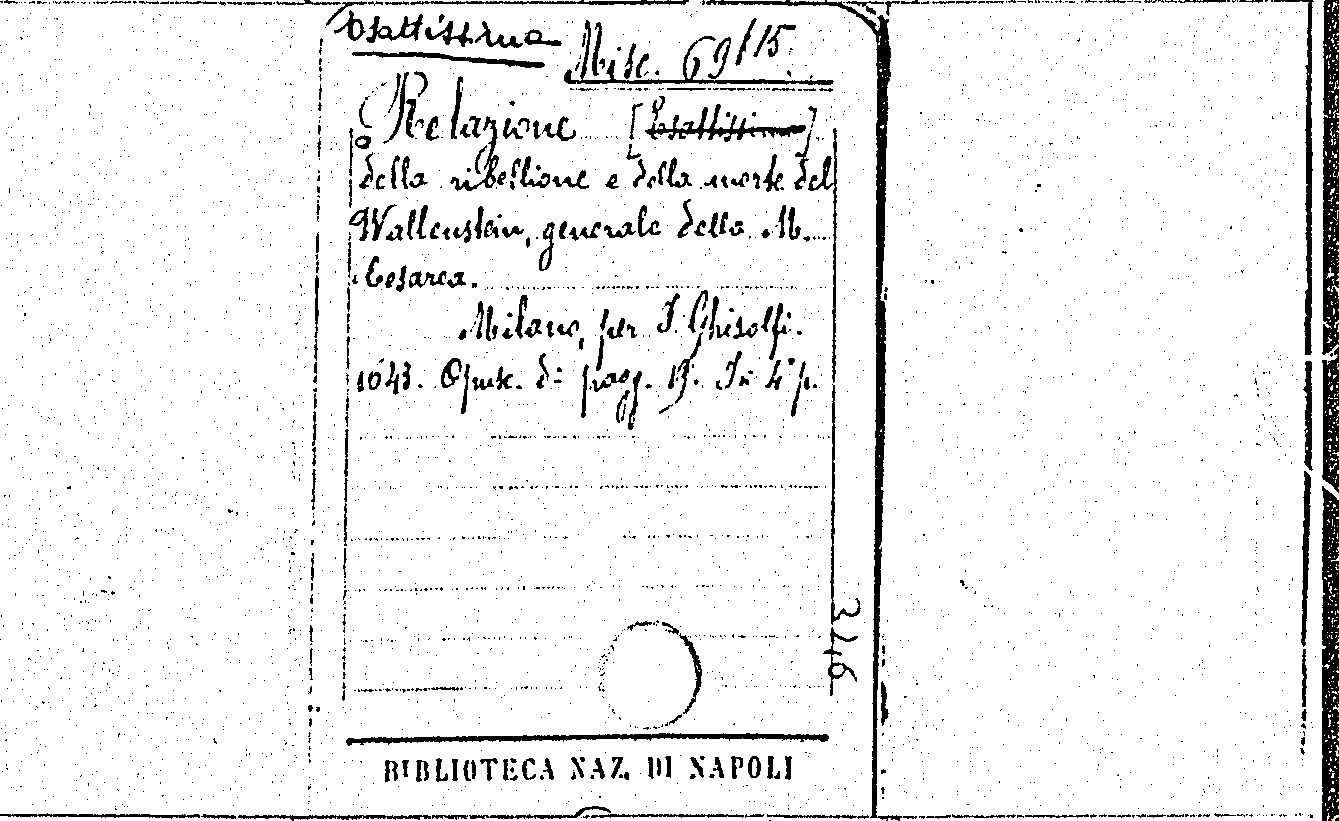 Esattissima
Misc. 69/15.
Relazione [Esattissima]
della ribellione e della morte del
Wallenstein, generale della M.
Cesarea.
Milano, per F. Ghisolfi.
1643. Opusc. di pagg. 19. In 4° p.
3246
BIBLIOTECA NAZ. DI NAPOLI